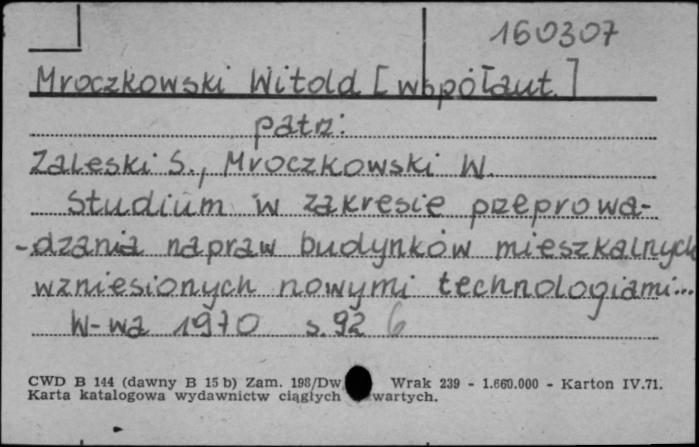 160307
Mroczkowski Witold [współaut.]
patrz:
Zaleski S., Mroczkowski W.
Studium w zakresie przeprowa-
-dzania napraw budynków mieszkalnych
wzniesionych nowymi technologiami...
W-wa 1970 s. 92 6
CWD B 144 (dawny B 15 b) Zam. 198/Dw Wrak 239 - 1.660.000 - Karton IV.71.
Karta katalogowa wydawnictw ciągłych wartych.